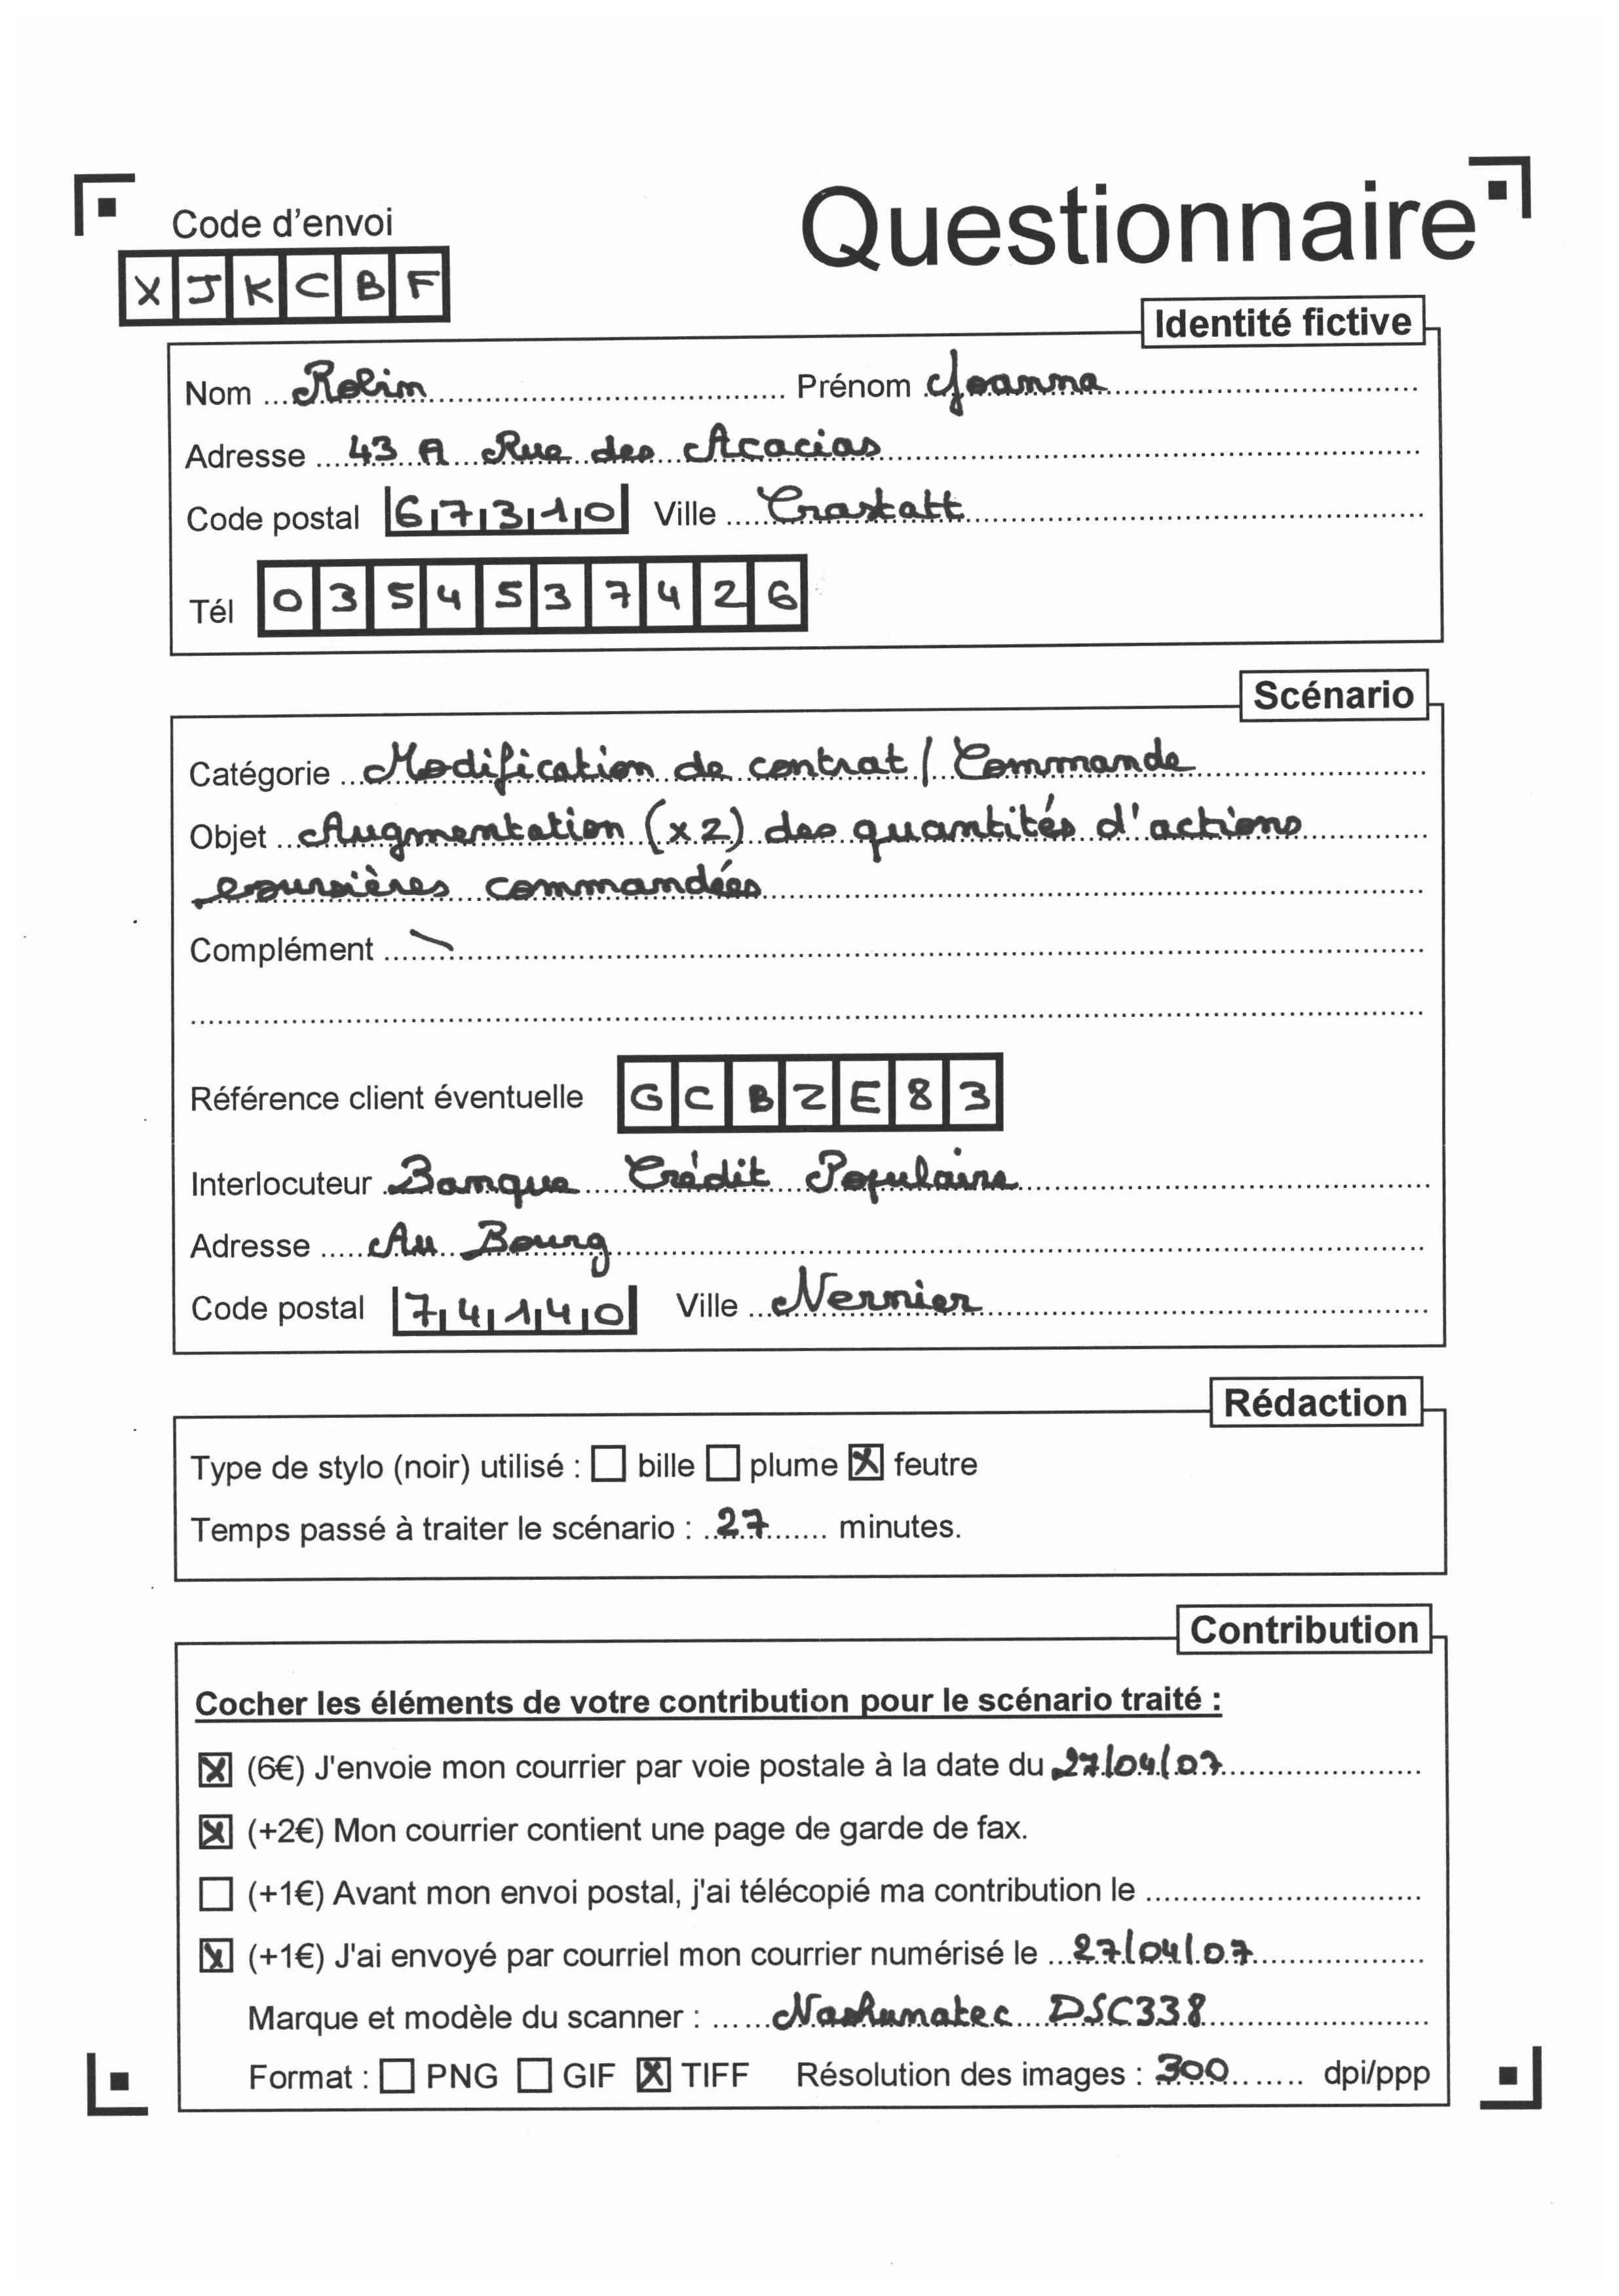 Code d'envoi
XJKCBF
Questionnaire
Identité fictive
Nom Rolin Prénom Joanna
Adresse 43 A Rue des Acacias
Code postal 67310 Ville Crastatt
Tél 0354537426
Scénario
Catégorie Modification de contrat / Commande
Objet Augmentation (x2) des quantités d'actions
boursières commandées
Complément
Référence client éventuelle GCBZE83
Interlocuteur Banque Crédit Populaire
Adresse Au Bourg
Code postal 74140 Ville Nernier
Rédaction
Type de stylo (noir) utilisé : ☐ bille ☐ plume ☒ feutre
Temps passé à traiter le scénario : 27 minutes.
Contribution
Cocher les éléments de votre contribution pour le scénario traité :
☒ (6€) J'envoie mon courrier par voie postale à la date du 27/04/07
☒ (+2€) Mon courrier contient une page de garde de fax.
☐ (+1€) Avant mon envoi postal, j'ai télécopié ma contribution le
☒ (+1€) J'ai envoyé par courriel mon courrier numérisé le 27/04/07
Marque et modèle du scanner : Nashuatec DSC338
Format : ☐ PNG ☐ GIF ☒ TIFF Résolution des images : 300 dpi/ppp